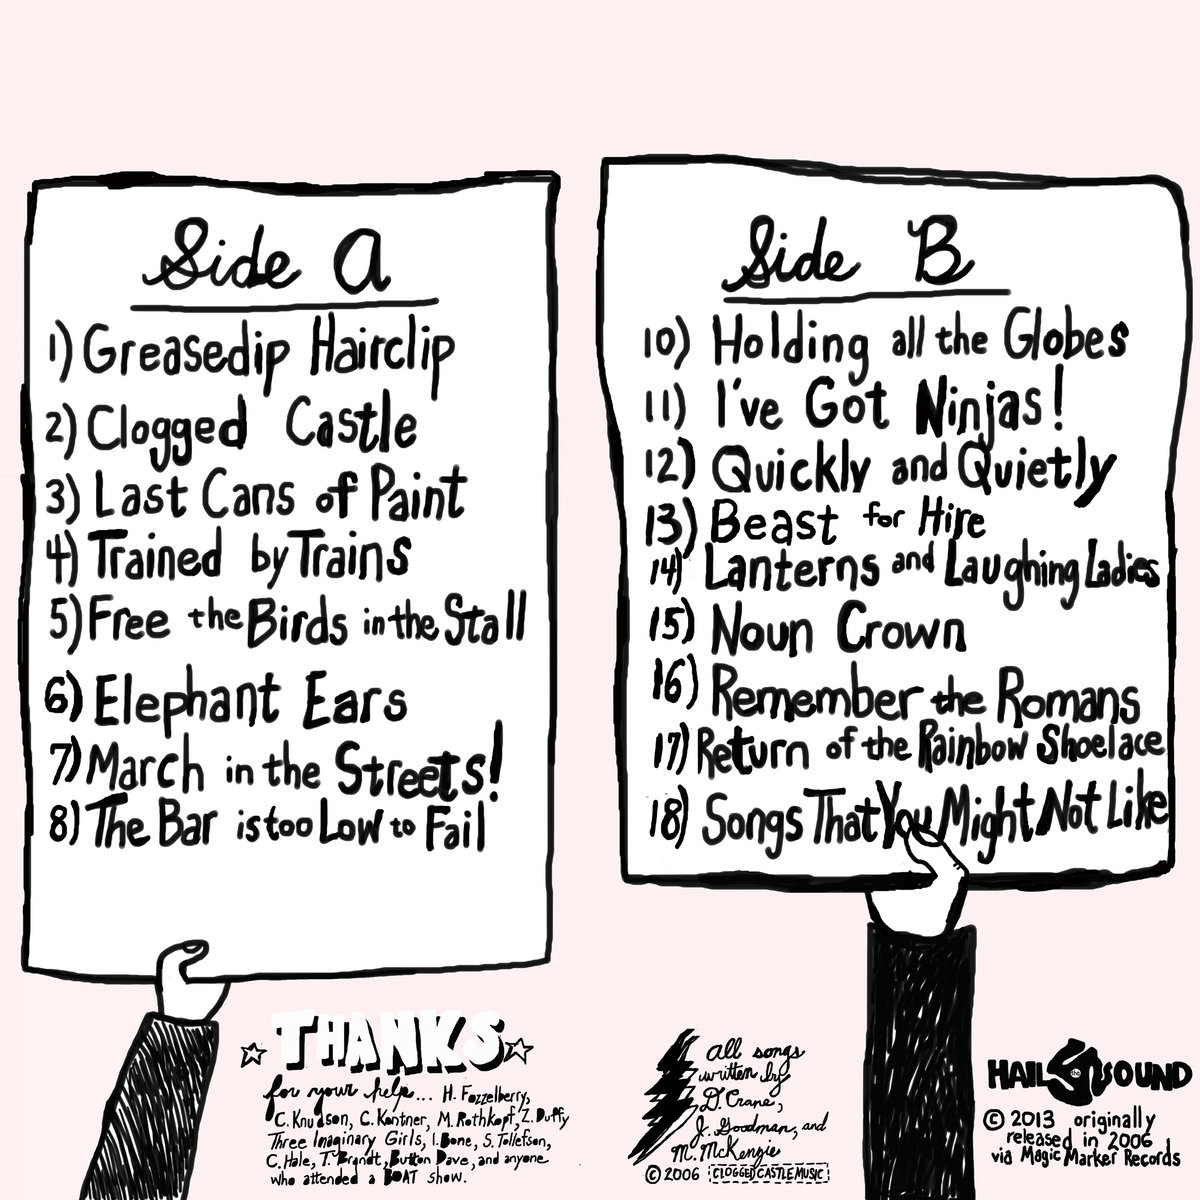 Side A
1) Greasedip Hairclip
2) Clogged Castle
3) Last Cans of Paint
4) Trained by Trains
5) Free the Birds in the Stall
6) Elephant Ears
7) March in the Streets!
8) The Bar is too Low to Fail
Side B
10) Holding all the Globes
11) I've Got Ninjas!
12) Quickly and Quietly
13) Beast for Hire
14) Lanterns and Laughing Ladies
15) Noun Crown
16) Remember the Romans
17) Return of the Rainbow Shoelace
18) Songs That You Might Not Like
THANKS
for your help... H. Fozzelberry,
C. Knudson, C. Kentner, M. Rothkopf, Z. Duffy
Three Imaginary Girls, I. Bone, S. Tollefson,
C. Hale, T. Brandt, Button Dave, and anyone
who attended a BOAT show.
All songs
written by
D. Crane,
J. Goodman, and
M. McKenzie
© 2006 CLOGGED CASTLE MUSIC
HAIL the SOUND
© 2013 originally
released in 2006
via Magic Marker Records